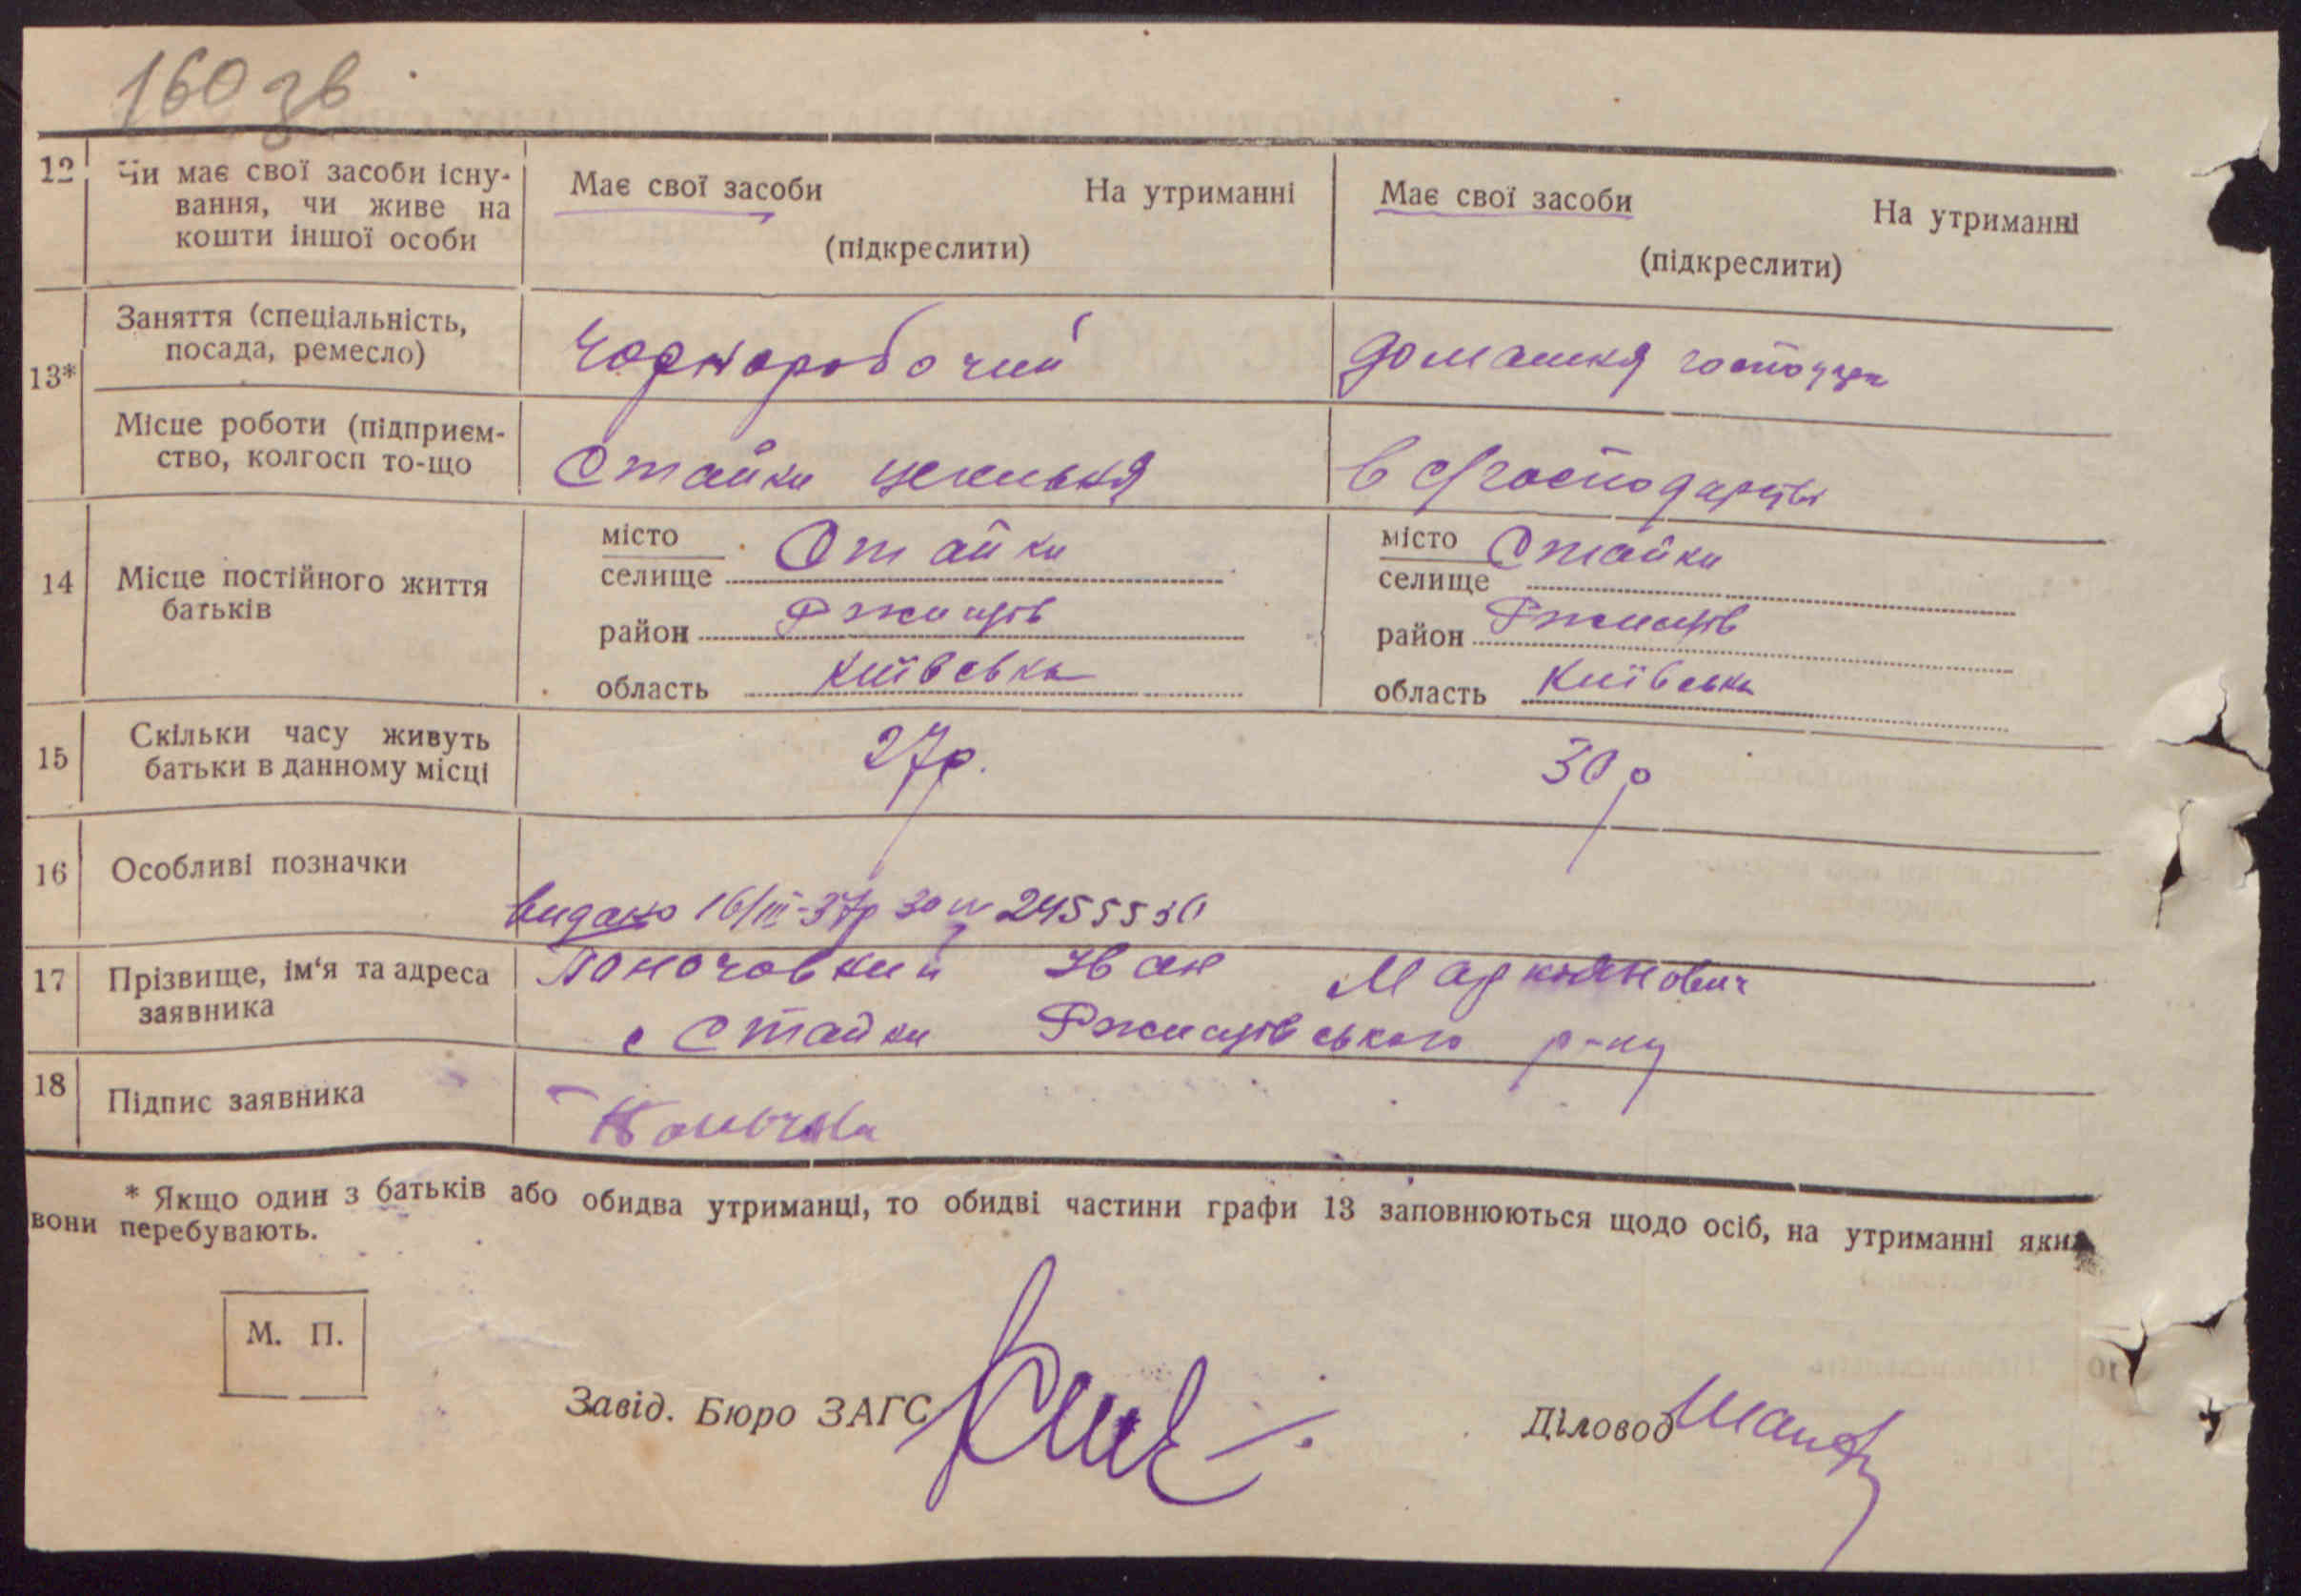 160 зв
12 Чи має свої засоби існу- Має свої засоби На утриманні Має свої засоби На утриманні
вання, чи живе на
кошти іншої особи (підкреслити) (підкреслити)
13* Заняття (спеціальність, Чорноробочий домашня господарк
посада, ремесло)
Місце роботи (підприєм- Стайки цегельня в с/господарстві
ство, колгосп то-що
14 Місце постійного життя місто Стайки місто Стайки
батьків селище селище
район Ржищів район Ржищів
область Київська область Київська
15 Скільки часу живуть 27р. 30р
батьки в данному місці
16 Особливі позначки
видано 16/III-37р 2455530
17 Прізвище, ім'я та адреса Іван Маркіянович
заявника с Стайки Ржищівського р-ну
18 Підпис заявника
* Якщо один з батьків або обидва утриманці, то обидві частини графи 13 заповнюються щодо осіб, на утриманні яких
вони перебувають.
М. П.
Завід. Бюро ЗАГС Діловод